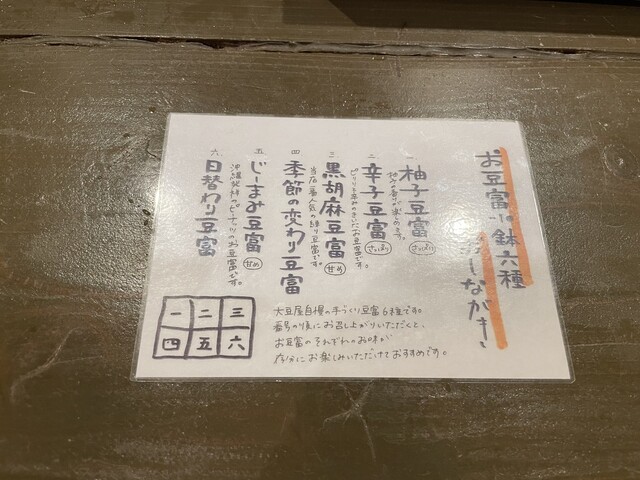 お豆富小鉢六種
おしながき
一 柚子豆富 さっぱり
柚子の香りが楽しめます。
二 辛子豆富 さっぱり
ピリリと辛みのきいたお豆富です。
三 黒胡麻豆富 甘め
当店一番人気の練り豆富です。
四 季節の変わり豆富
五 じーまみ豆富 甘め
沖縄発祥のピーナッツのお豆富です。
六 日替わり豆富
大豆屋自慢の手づくり豆富6種です。
番号から順にお召し上がりいただくと、
お豆富のそれぞれのお味が
存分にお楽しみいただけておすすめです。
一 二 三
四 五 六